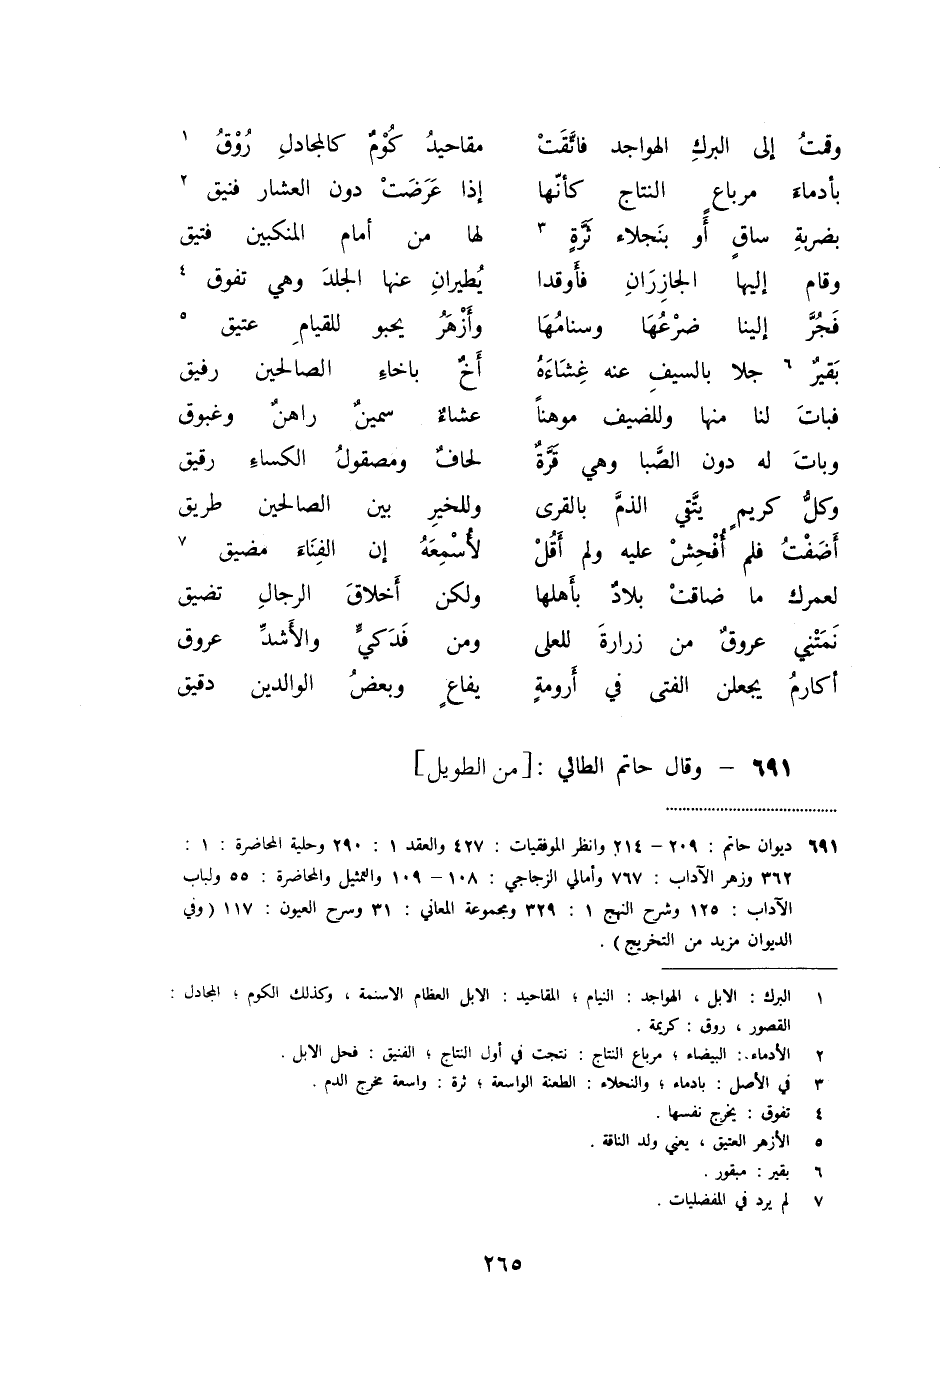 وقمتُ إلى البركِ الهواجد فاتَّقَتْ مقاحيدُ كُوْمٌ كالمجادلِ رُوْقُ ١
بأدماءَ مرباعٍ النتاج كأنّها إذا عَرَضَتْ دون العشار فنيق ٢
بضربةِ ساقٍ أو بنَجلاء ثَرَّةٍ ٣ لها من أمام المنكبين فتيق
وقام إليها الجازِرَانِ فأَوقدا يُطيرانِ عنها الجلدَ وهي تفوق ٤
فَجُرَّ إلينا ضَرْعُهَا وسنامُهَا وأَزْهَرُ يحبو للقيامِ عتيق ٥
بَقيرٌ ٦ جلا بالسيفِ عنه غِشَاءَهُ أَخٌ باخاءِ الصالحين رفيق
فباتَ لنا منها وللضيف موهناً عشاءٌ سمينٌ راهنٌ وغبوق
وباتَ له دون الصَّبا وهي قَرَّةٌ لحافٌ ومصقولُ الكساءِ رقيق
وكلُّ كريمٍ يتَّقي الذمَّ بالقرى وللخيرِ بين الصالحين طريق
أَضَفْتُ فلم أُفْحِشْ عليه ولم أَقُلْ لأُسْمِعَهُ إن الفِنَاءَ مضيق ٧
لعمرك ما ضاقتْ بلادٌ بأَهلها ولكن أَخلاقَ الرجالِ تضيق
نَمَتْنِي عروقٌ من زرارةَ للعلى ومن فَدَكيٍّ والأَشدِّ عروق
أكارمُ يجعلن الفتى في أَرومةٍ يفاعٍ وبعضُ الوالدين دقيق
٦٩١ – وقال حاتم الطائي : [من الطويل]
٦٩١ ديوان حاتم : ٢٠٩ – ٢١٤ وانظر الموفقيات : ٤٢٧ والعقد ١ : ٢٩٠ وحلية المحاضرة : ١ :
٣٦٢ وزهر الآداب : ٧٦٧ وأمالي الزجاجي : ١٠٨ – ١٠٩ والتمثيل والمحاضرة : ٥٥ ولباب
الآداب : ١٢٥ وشرح النهج ١ : ٣٢٩ ومجموعة المعاني : ٣١ وسرح العيون : ١١٧ ( وفي
الديوان مزيد من التخريج ) .
١ البرك : الابل ، الهواجد : النيام ؛ المقاحيد : الابل العظام الاسنمة ، وكذلك الكوم ؛ المجادل :
القصور ، روق : كريمة .
٢ الأدماء : البيضاء ؛ مرباع النتاج : نتجت في أول النتاج ؛ الفنيق : فحل الابل .
٣ في الأصل : بادماء ؛ والنجلاء : الطعنة الواسعة ؛ ثرة : واسعة مخرج الدم .
٤ تفوق : يخرج نفسها .
٥ الأزهر العتيق ، يعني ولد الناقة .
٦ بقير : مبقور .
٧ لم يرد في المفضليات .
٢٦٥